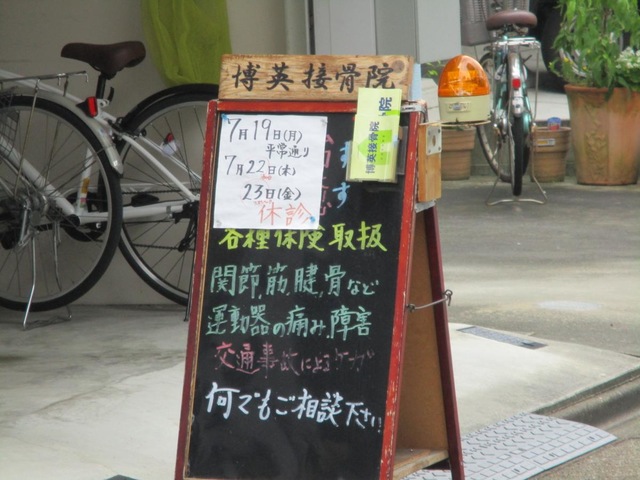 博英接骨院
7月19日(月)
平常通り
7月22日(木)
23日(金)
休診
博英接骨院
ます
各種保険取扱
関節,筋,腱,骨など
運動器の痛み,障害
交通事故によるケガ
何でもご相談下さい!